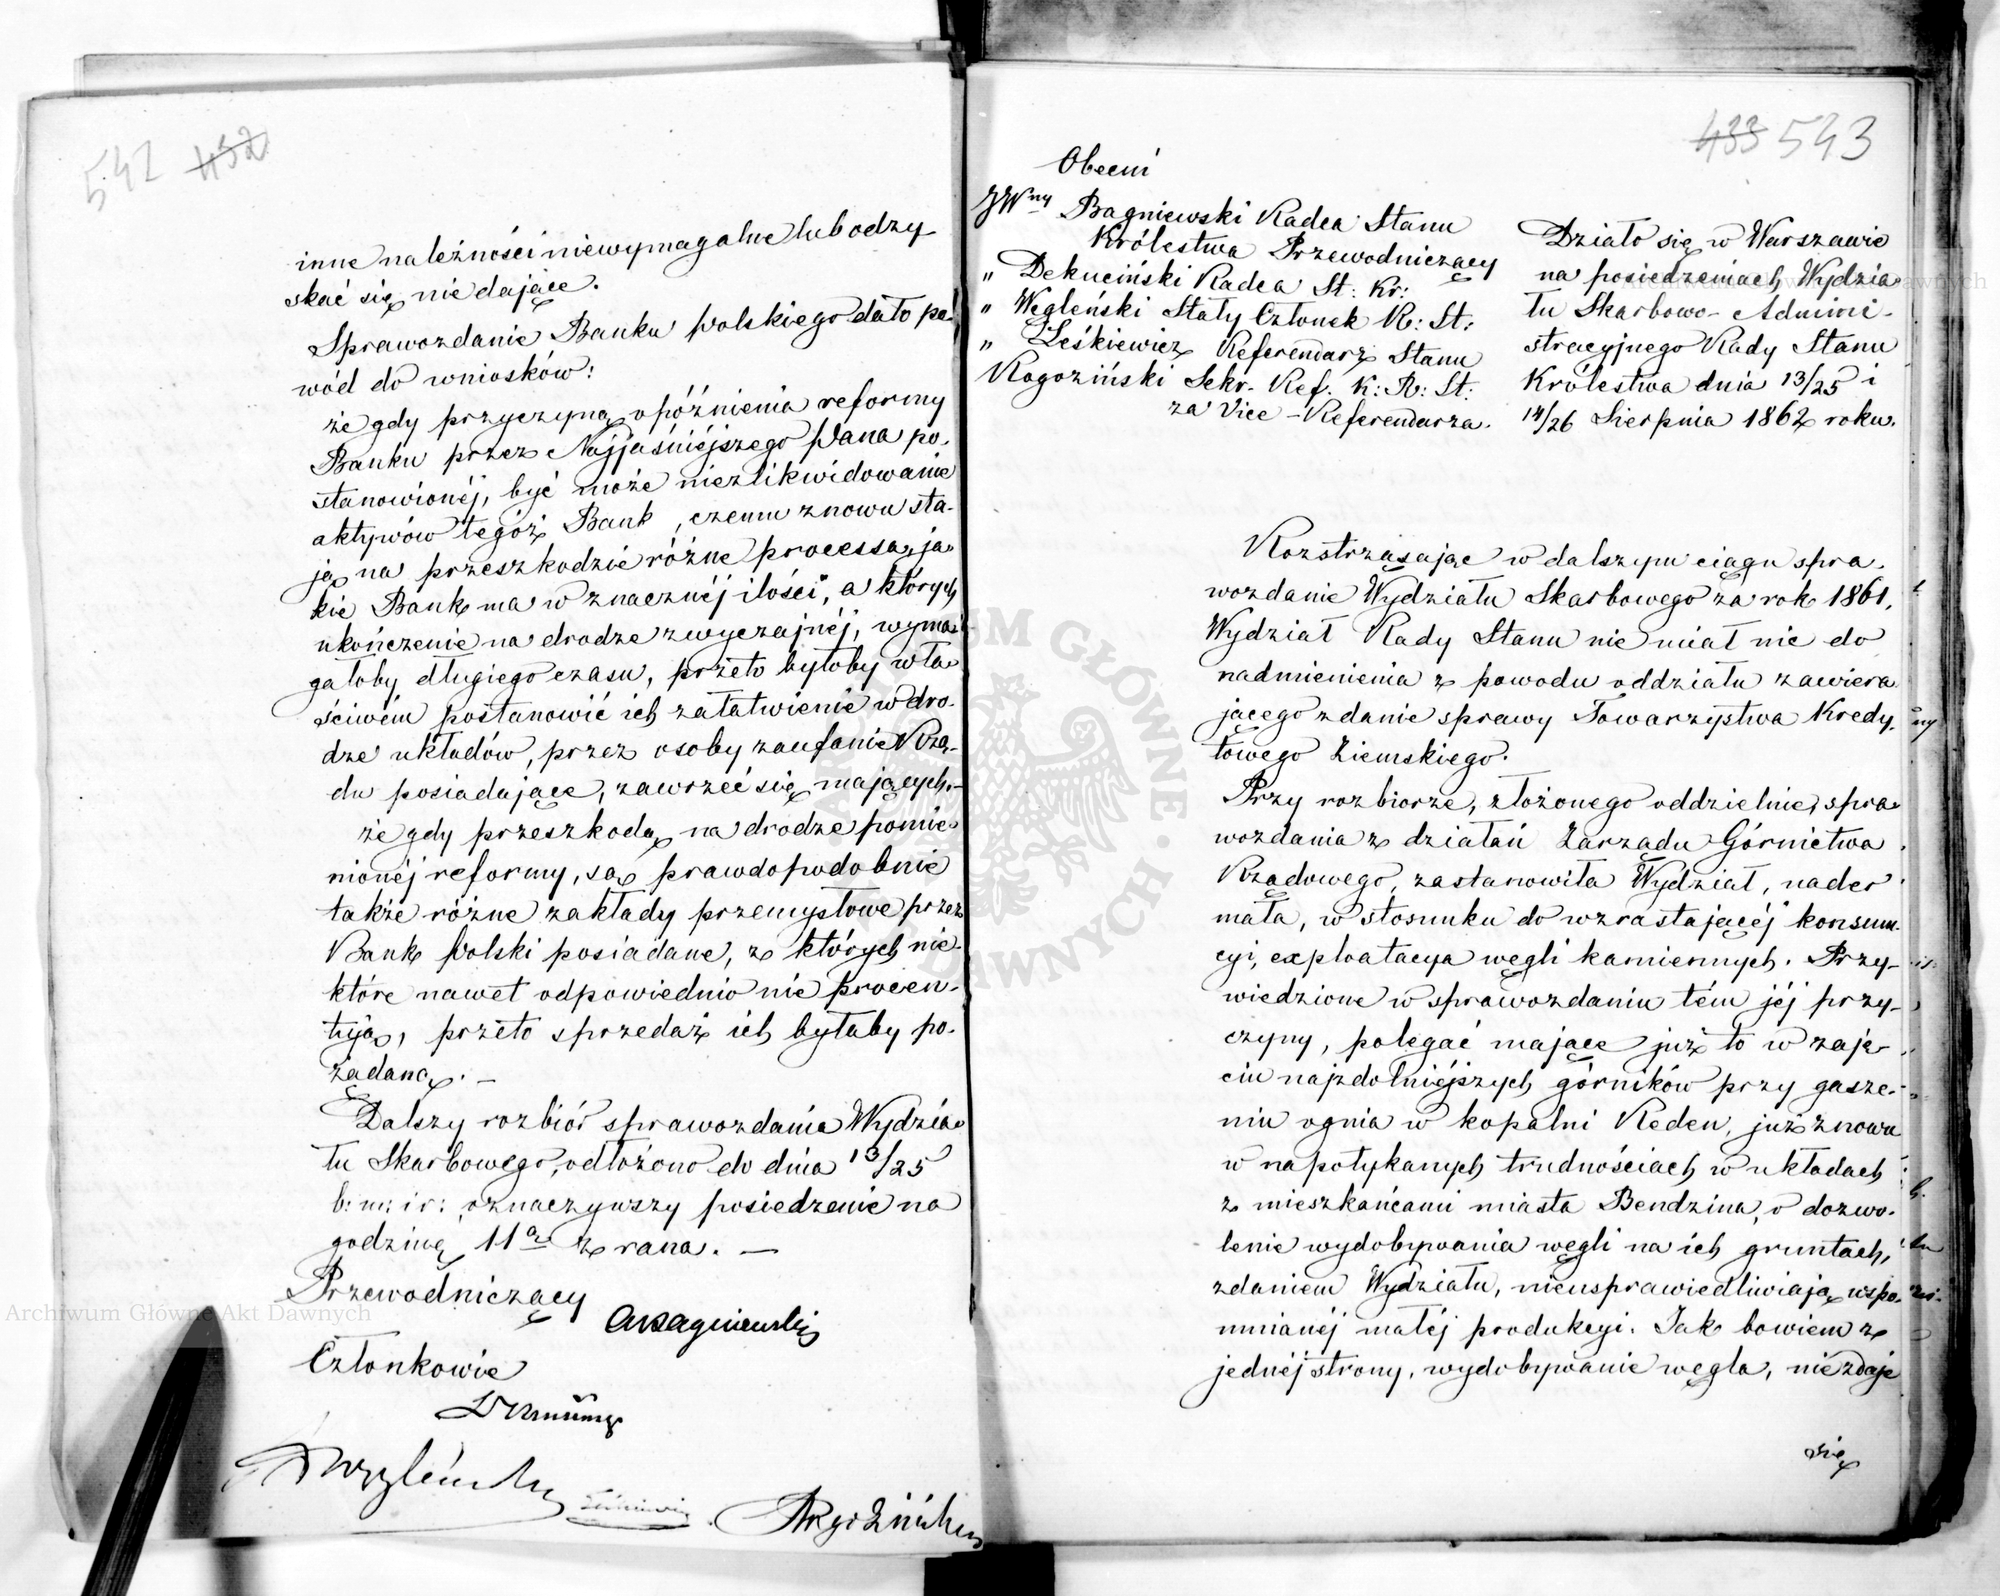 542 432
inne należności niewymagalne lub odzy
skać się nie dające.
Sprawozdanie Banku Polskiego dało po-
wód do wniosków:
że gdy przyczyną opóźnienia reformy
Banku przez Najjaśniéjszego Pana po-
stanowionéj, być może niezlikwidowanie
aktywów tegóż Bank, czemu znowu sta-
ją na przeszkodzie różne processa, ja-
kie Bank ma w znacznéj ilości, a których
ukończenie na drodze zwyczajnéj, wyma-
gałoby długiego czasu, przeto byłoby wła-
ściwém postanowić ich załatwienie w dro-
dze układów, przez osoby zaufanie Rzą-
du posiadające, zawrzeć się mających.—
że gdy przeszkodą na drodze pomie-
nionéj reformy, są prawdopodobnie
także różne zakłady przemysłowe przez
Bank Polski posiadane, z których nie-
które nawet odpowiednio nie procen-
tują, przeto sprzedaż ich byłaby po-
żądaną. —
Dalszy rozbiór sprawozdania Wydzia-
łu Skarbowego, odłożono do dnia 13/25
b: m: i r: oznaczywszy posiedzenie na
godzinę 11ą z rana. —
Przewodniczący
ABagniewski
Członkowie
Węgleński
Rogoziński
433 543
Obecni
JWny Bagniewski Radca Stanu
Królestwa Przewodniczący
" Dekuciński Radca St: Kr:
" Węgleński Stały Członek R: St:
" Leśkiewicz Referendarz Stanu
Rogoziński Sekr. Ref. K: R: St:
za Vice-Referendarza.
Działo się w Warszawie
na posiedzeniach Wydzia
łu Skarbowo-Admini-
stracyjnego Rady Stanu
Królestwa dnia 13/25 i
14/26 Sierpnia 1862 roku.
Rozstrząsając w dalszym ciągu spra-
wozdanie Wydziału Skarbowego za rok 1861,
Wydział Rady Stanu nie miał nic do
nadmienienia z powodu oddziału zawiera
jącego zdanie sprawy Towarzystwa Kredy-
towego Ziemskiego.
Przy rozbiorze, złożonego oddzielnie, spra-
wozdania z działań Zarządu Górnictwa
Rządowego, zastanowiła Wydział, nader
mała, w stosunku do wzrastającéj konsum-
cyi, exploatacya węgli kamiennych. Przy-
wiedzione w sprawozdaniu tém jéj przy-
czyny, polegać mające już to w zaję-
ciu najzdolniéjszych górników przy gasze-
niu ognia w kopalni Reden, już znowu
w napotykanych trudnościach w układach
z mieszkańcami miasta Bendzina, o dozwo-
lenie wydobywania węgli na ich gruntach,
zdaniem Wydziału, nieusprawiedliwiają wspo-
mnianéj małéj produkcyi. Jak bowiem z
jednéj strony, wydobywanie węgla, niezdaje
się
Archiwum Główne Akt Dawnych
ARCHIWUM GŁÓWNE AKT DAWNYCH